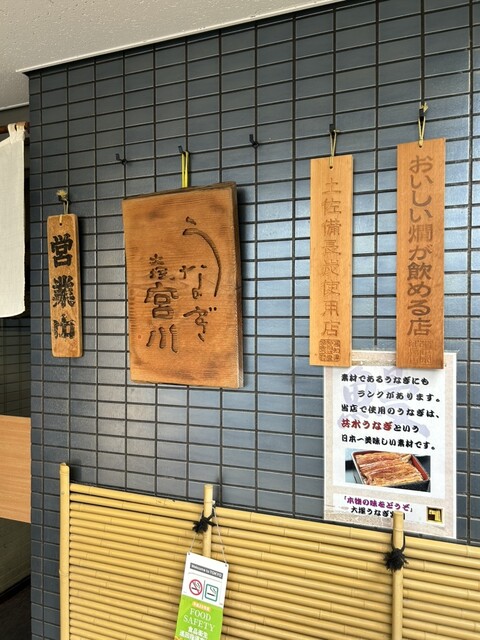 営業中
うなぎ
宮川
土佐備長炭使用店
おいしい燗が飲める店
素材であるうなぎにも
ランクがあります。
当店で使用のうなぎは、
共水うなぎという
日本一美味しい素材です。
「本物の味をどうぞ」
大塚うなぎ
FOOD
SAFETY